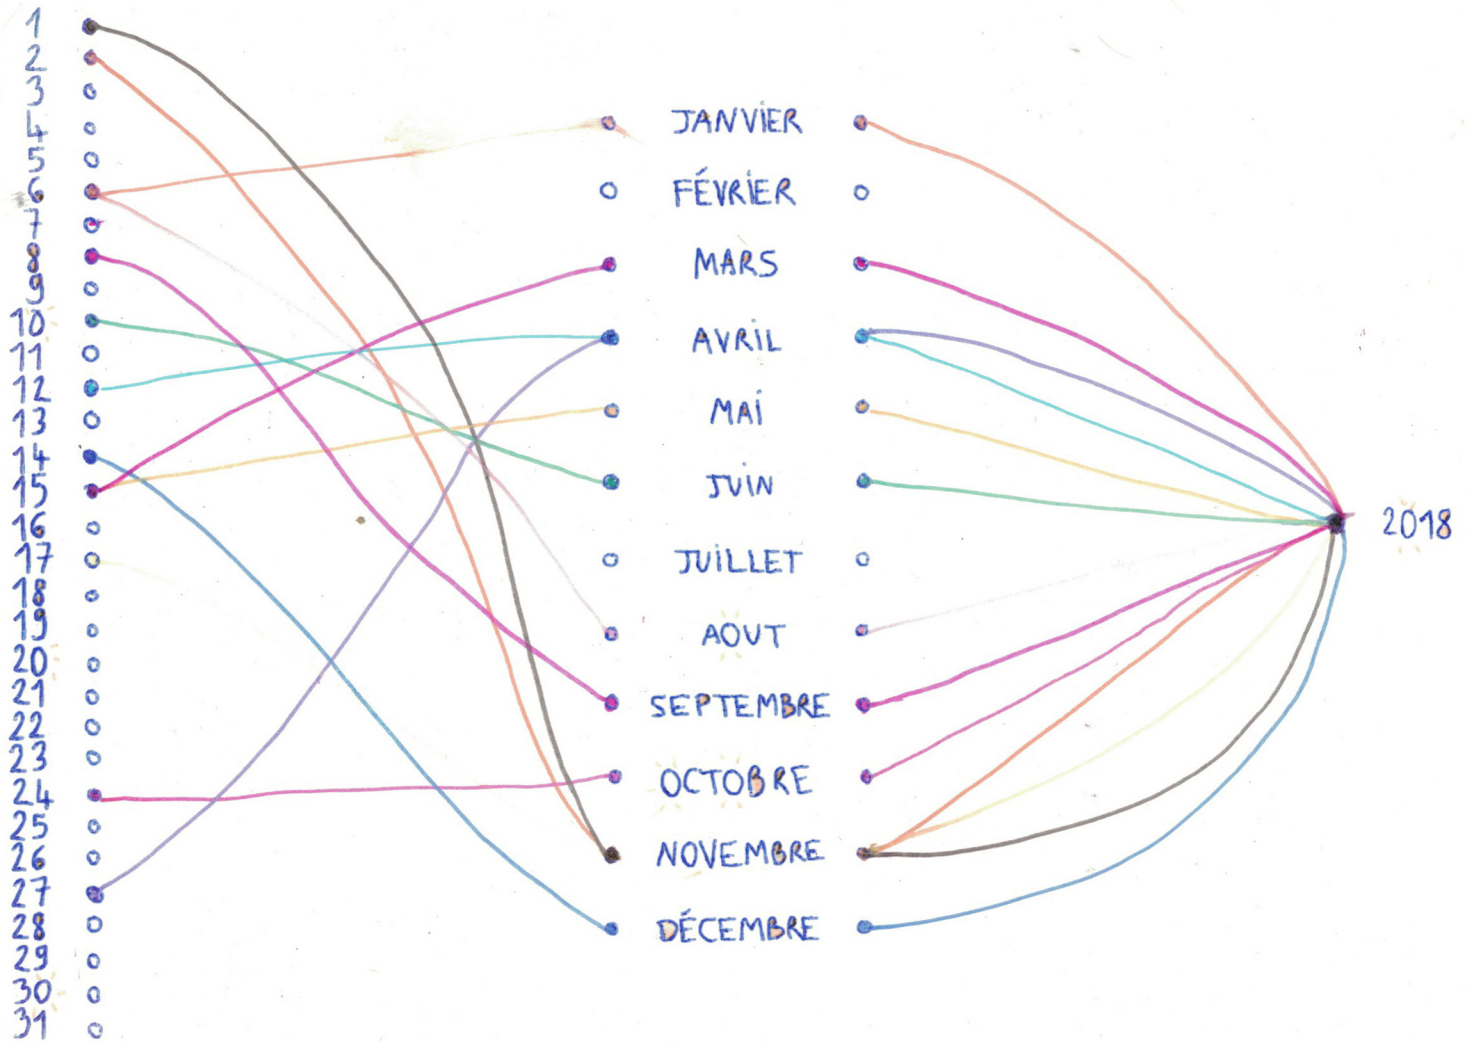 1
2
3
4
5
6
7
8
9
10
11
12
13
14
15
16
17
18
19
20
21
22
23
24
25
26
27
28
29
30
31
JANVIER
FÉVRIER
MARS
AVRIL
MAI
JUIN
JUILLET
AOUT
SEPTEMBRE
OCTOBRE
NOVEMBRE
DÉCEMBRE
2018